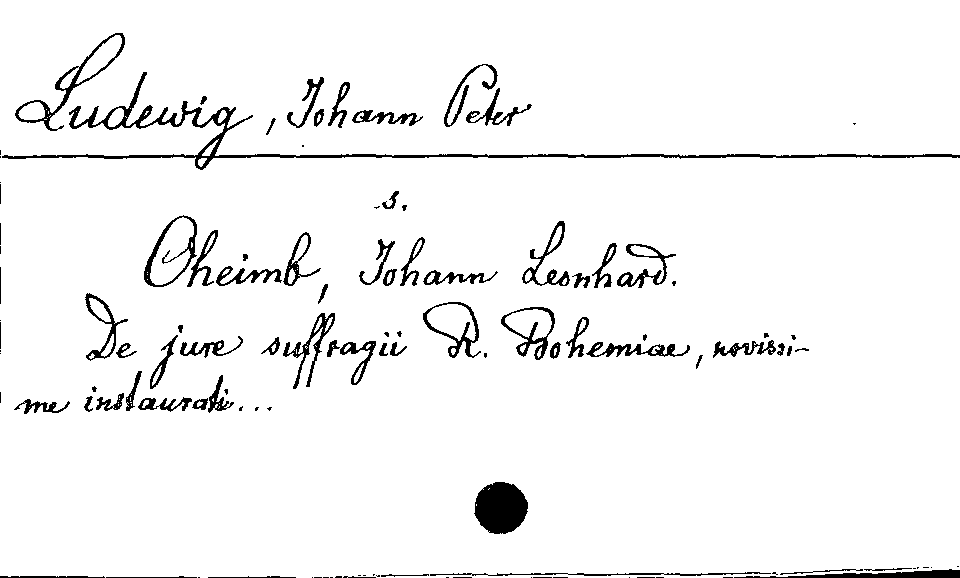 Ludewig, Johann Peter
s.
Oheimb, Johann Leonhard.
De jure suffragii R. Bohemiae, novissi-
me instaurati...